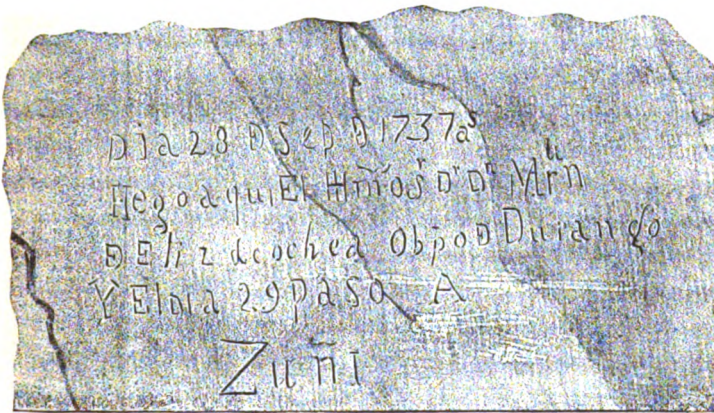 Dia 28 Ð Sep Ð 1737 aˢ
llego aqui El Hm̃o Sʳ Dʳ Dⁿ Mrn̄
Ð Eliz decochea Obpo Ð Durango
Y El Dia 29 paso A
Zuñi